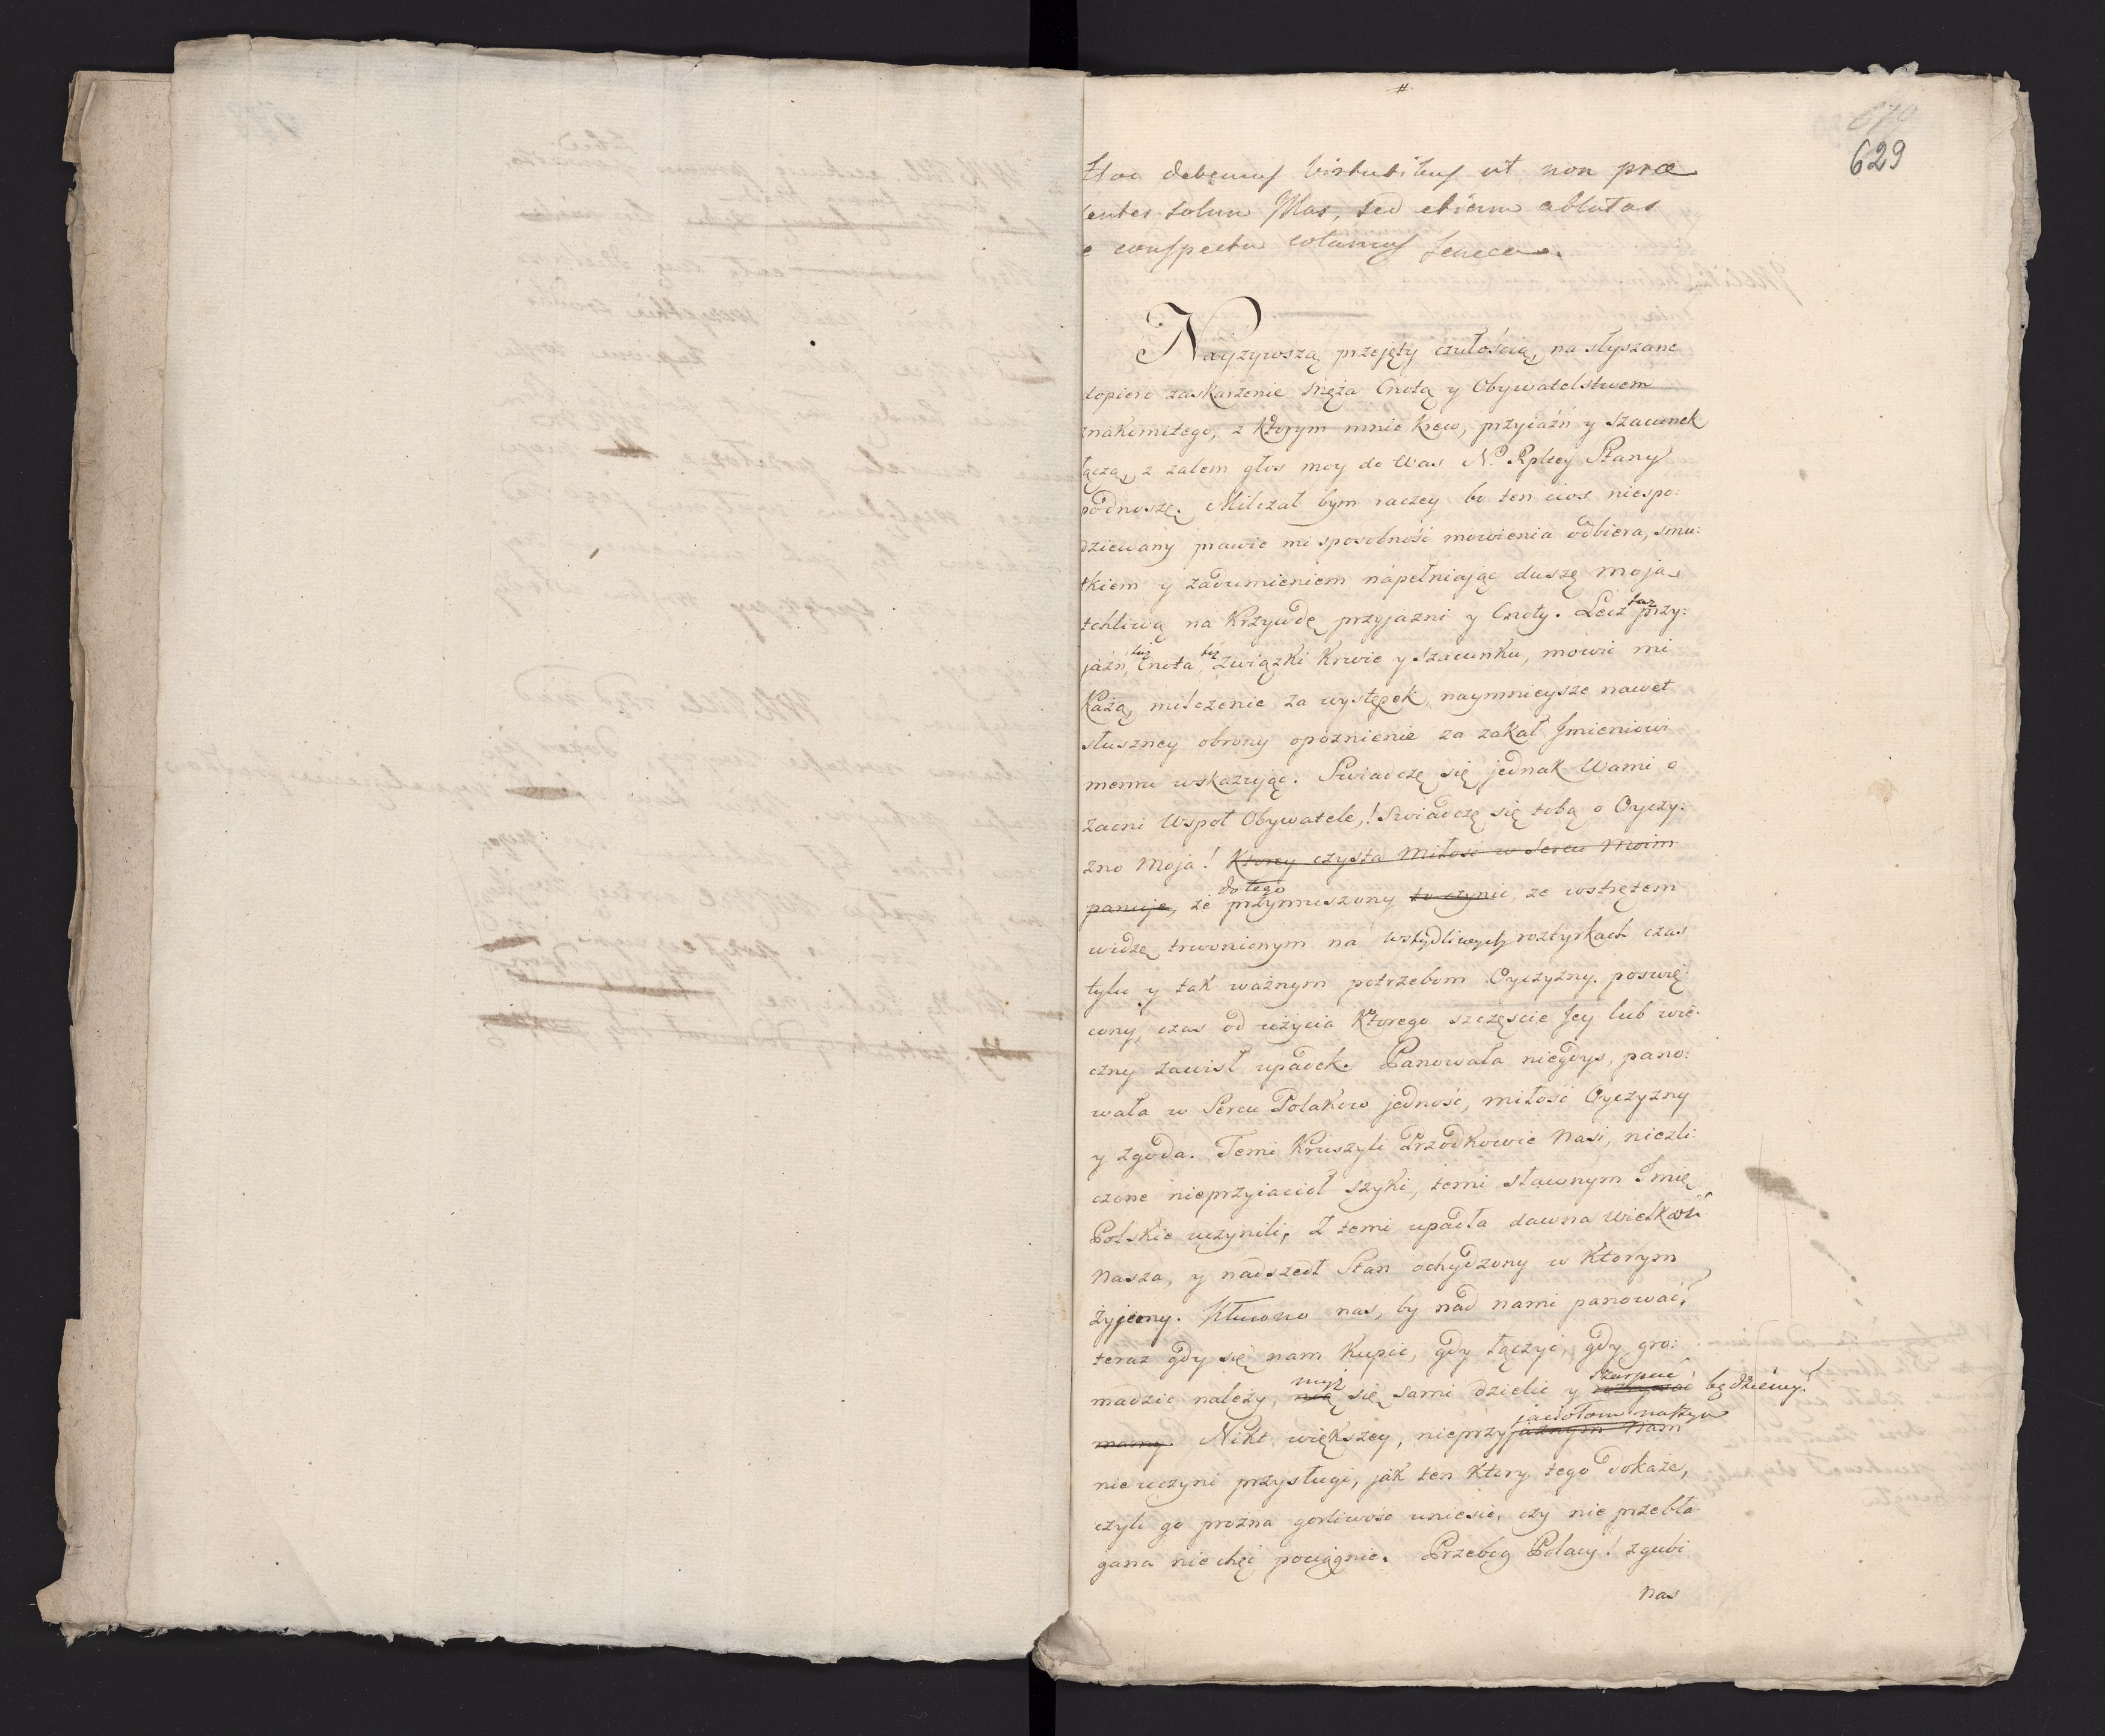 #
629
Hoc debemus virtutibus ut non præ
sentes solum Illas, sed etiam ablatas
e conspectu colamus Seneca.
Nayzywszą przejęty czułością, na słyszane
dopiero zaskarżenie męża Cnotą y Obywatelstwem
znakomitego, z Ktorym mnie Krew, przyiaźń y szacunek
łączą, z zalem głos moy do Was N. Rpltey Stany
podnoszę. Milczał bym raczey bo ten cios niespo:
dziewany prawie mi sposobność mowienia odbiera, smu:
tkiem y zadumieniem nápełniając duszę moją
tchliwą ná Krzywdę przyjazni y Cnoty. Lecz taż przy:
jaźń, taż Cnota, też związki Krwie y szacunku, mowić mi
Każą, milczenie za występek, naymnieysze nawet
słuszney obrony opoznienie za zakał Jmieniowi
memu wskazując. Swiadczę się jednak Wami o
zacni Wspoł Obywatele,! Swiadczę się tobą o Oyczy:
zno moja! Ktorey czysta Miłość w Sercu Moim
panuje, że do tego przymuszony to czynić, ze wstrętem
widzę trwonionym na wstydliwych roztyrkach czas
tylu y tak ważnym potrzebom Oyczyzny poswię:
cony, czas od użycia Ktorego szczęscie Jey lub wie:
czny zawisł upadek. Panowała niegdys, pano:
wała w Sercu Polakow jedność, miłość Oyczyzny
y zgoda. Temi Kruszyli Przodkowie Nasi, niezli:
czone nieprzyiacioł szyki, temi sławnym Imię
Polskie uczynili, Z temi upadła dawna Wielkość
Nasza, y nadszedł Stan ochydzony w Ktorym
żyjemy. Kłucono nas, by nad nami panować,
teraz gdy się nam Kupić, gdy łączyć, gdy gro:
madzić należy, myż się sami dzielić y szarpać będziemy?
mamy. Nikt większey, nieprzyjaciołom naszym jaznym Nam
nie uczyni przysługi, jak ten Ktory tego dokaże,
czyli go prożna gorliwość uniesie, czy nie przebła
gana niechęć pociągnie. Przebóg Polacy! zgubi
Nas